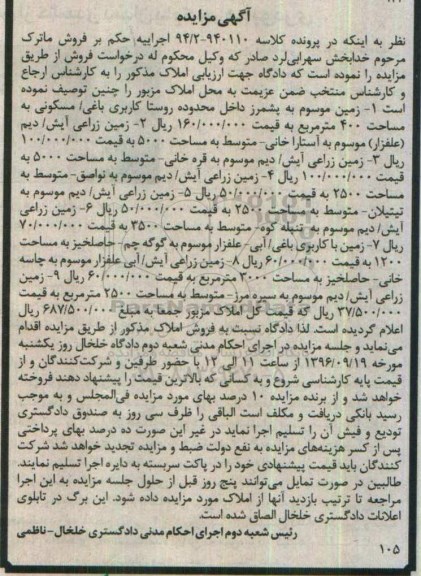 آگهی مزایده
نظر به اینکه در پرونده کلاسه ۹۴۰۱۱۰-۹۴/۲ اجراییه حکم بر فروش ماترک
مرحوم خدابخش سهرابی‌لرد صادر که وکیل محکوم له درخواست فروش از طریق
مزایده را نموده است که دادگاه جهت ارزیابی املاک مذکور را به کارشناس ارجاع
و کارشناس منتخب ضمن عزیمت به محل املاک مزبور را چنین توصیف نموده
است ۱- زمین موسوم به پشمرز داخل محدوده روستا کاربری باغی/ مسکونی به
مساحت ۴۰۰ مترمربع به قیمت ۱۶۰/۰۰۰/۰۰۰ ریال ۲- زمین زراعی آیش/ دیم
(علفزار) موسوم به آستارا خانی- متوسط به مساحت ۵۰۰۰ به قیمت ۱۰۰/۰۰۰/۰۰۰
ریال ۳- زمین زراعی آیش/ دیم موسوم به قره خانی- متوسط به مساحت ۵۰۰۰ به
قیمت ۱۰۰/۰۰۰/۰۰۰ ریال ۴- زمین زراعی آیش/ دیم موسوم به نواصق- متوسط به
مساحت ۲۵۰۰ به قیمت ۵۰/۰۰۰/۰۰۰ ریال ۵- زمین زراعی آیش/ دیم موسوم به
تیتیلان- متوسط به مساحت ۲۵۰۰ به قیمت ۵۰/۰۰۰/۰۰۰ ریال ۶- زمین زراعی
آیش/ دیم موسوم به تیله کوه- متوسط به مساحت ۳۵۰۰ به قیمت ۷۰/۰۰۰/۰۰۰
ریال ۷- زمین با کاربری باغی/ آبی- علفزار موسوم به گوگه چم- حاصلخیز به مساحت
۱۲۰۰ به قیمت ۶۰/۰۰۰/۰۰۰ ریال ۸- زمین زراعی آیش/ آبی علفزار موسوم به چاسه
خانی- حاصلخیز به مساحت ۳۰۰۰ مترمربع به قیمت ۶۰/۰۰۰/۰۰۰ ریال ۹- زمین
زراعی آیش/ دیم موسوم به سیره مرز- متوسط به مساحت ۲۵۰۰ مترمربع به قیمت
۳۷/۵۰۰/۰۰۰ ریال که قیمت کل املاک مزبور جمعا به مبلغ ۶۸۷/۵۰۰/۰۰۰ ریال
اعلام گردیده است. لذا دادگاه نسبت به فروش املاک مذکور از طریق مزایده اقدام
می‌نماید و جلسه مزایده در اجرای احکام مدنی شعبه دوم دادگاه خلخال روز یکشنبه
مورخه ۱۳۹۶/۰۹/۱۹ از ساعت ۱۱ الی ۱۲ با حضور طرفین و شرکت‌کنندگان و از
قیمت پایه کارشناسی شروع و به کسانی که بالاترین قیمت را پیشنهاد دهند فروخته
خواهد شد و از برنده مزایده ۱۰ درصد بهای مورد مزایده فی‌المجلس و به موجب
رسید بانکی دریافت و مکلف است الباقی را ظرف سی روز به صندوق دادگستری
تودیع و فیش آن را تسلیم اجرا نماید در غیر این صورت ده درصد بهای پرداختی
پس از کسر هزینه‌های مزایده به نفع دولت ضبط و مزایده تجدید خواهد شد شرکت
کنندگان باید قیمت پیشنهادی خود را در پاکت سربسته به دایره اجرا تسلیم نمایند.
طالبین در صورت تمایل می‌توانند پنج روز قبل از حلول جلسه مزایده به این اجرا
مراجعه تا ترتیب بازدید آنها از املاک مورد مزایده داده شود. این برگ در تابلوی
اعلانات دادگستری خلخال الصاق شده است.
رئیس شعبه دوم اجرای احکام مدنی دادگستری خلخال- ناظمی
۱۰۵